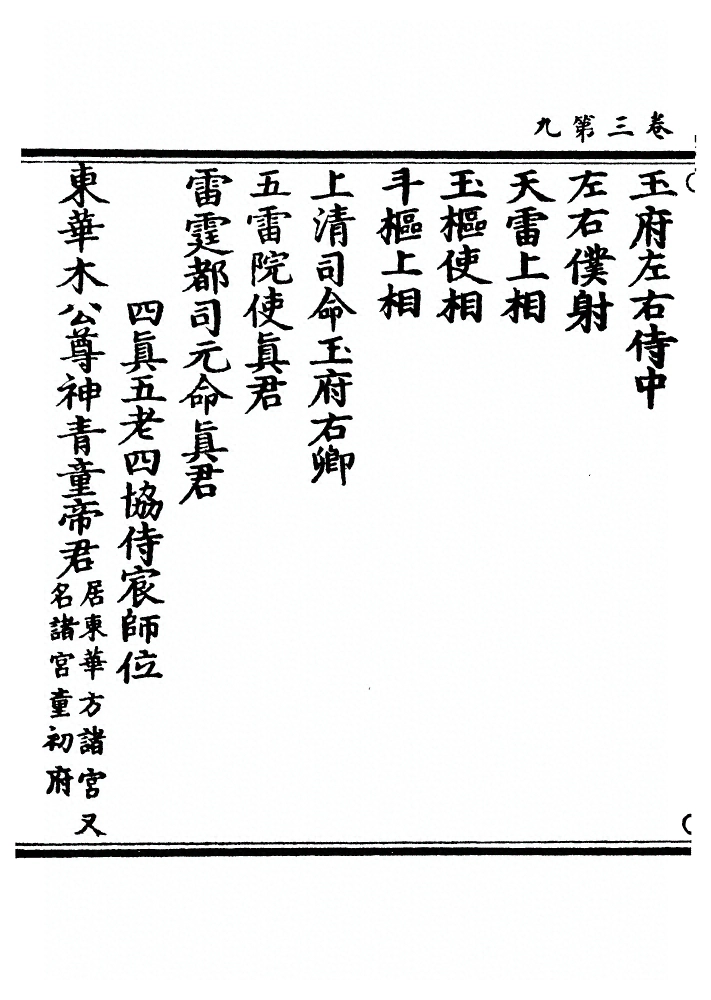 卷三第九
玉府左右侍中
左右僕射
天雷上相
玉樞使相
斗樞上相
上清司命玉府右卿
五雷院使眞君
雷霆都司元命眞君
四眞五老四協侍宸師位
東華木公尊神青童帝君居東華方諸宮又
名諸宮童初府